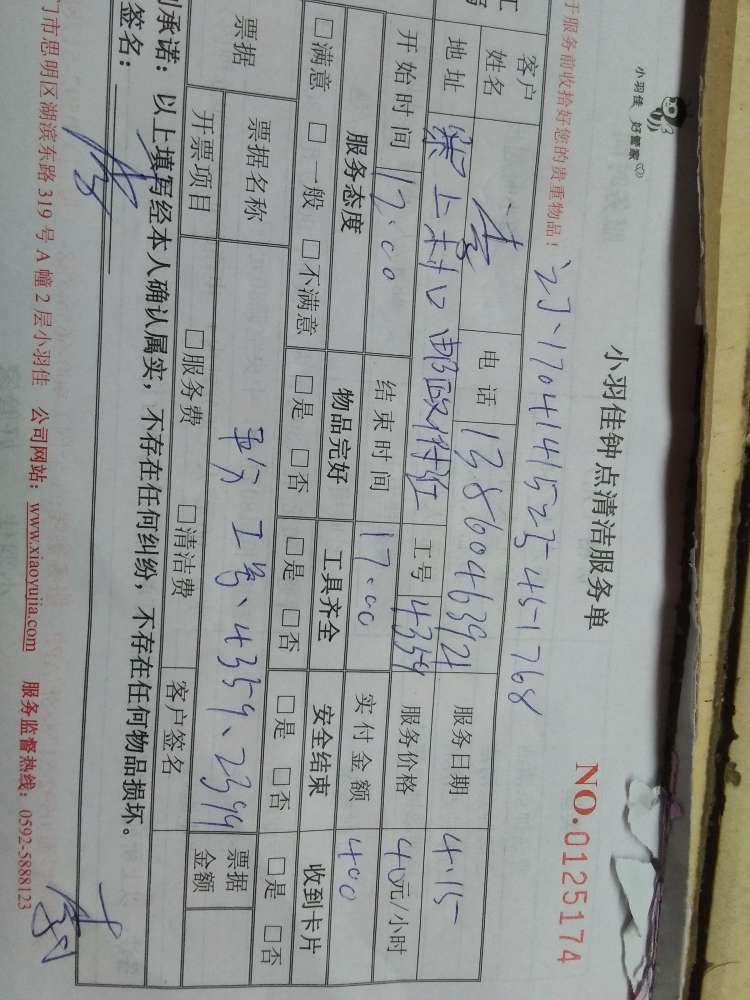 小羽佳 好管家
小羽佳钟点清洁服务单
NO.0125174
于服务前收拾好您的贵重物品!
订、1704141523451768
客户姓名 李 电话 13860463921 服务日期 4.15
地址 梁上村口邮政 工号 4359 服务价格 40元/小时
开始时间 12.00 结束时间 17.00 实付金额 400
服务态度 物品完好 工具齐全 安全结束 收到卡片
□满意 □一般 □不满意 □是 □否 □是 □否 □是 □否 □是 □否
票据 票据名称 工号、4359、2399 票据金额
开票项目 □服务费 □清洁费 客户签名
承诺：以上填写经本人确认属实，不存在任何纠纷，不存在任何物品损坏。
签名： 李
门市思明区湖滨东路 319 号 A 幢 2 层小羽佳 公司网站：www.xiaoyujia.com 服务监督热线：0592-5888123